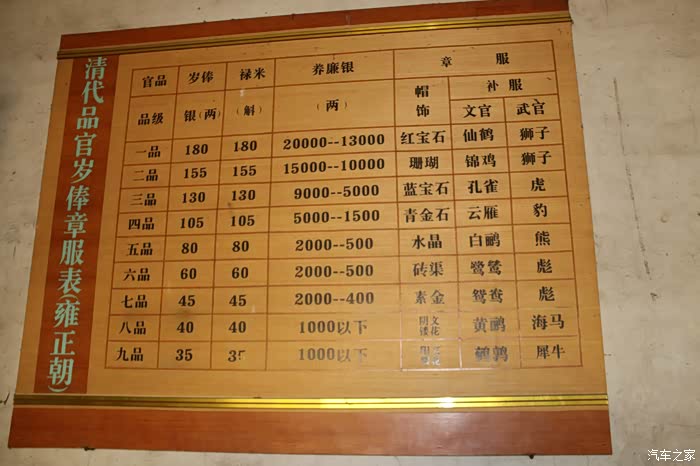 清代品官岁俸章服表(雍正朝)
官品 岁俸 禄米 养廉银 章服
帽 补服
品级 银(两) (斛) (两) 饰 文官 武官
一品 180 180 20000--13000 红宝石 仙鹤 狮子
二品 155 155 15000--10000 珊瑚 锦鸡 狮子
三品 130 130 9000--5000 蓝宝石 孔雀 虎
四品 105 105 5000--1500 青金石 云雁 豹
五品 80 80 2000--500 水晶 白鹇 熊
六品 60 60 2000--500 砖渠 鹭鸶 彪
七品 45 45 2000--400 素金 鸳鸯 彪
八品 40 40 1000以下 阴文镂花 黄鹂 海马
九品 35 35 1000以下 鹌鹑 犀牛
汽车之家